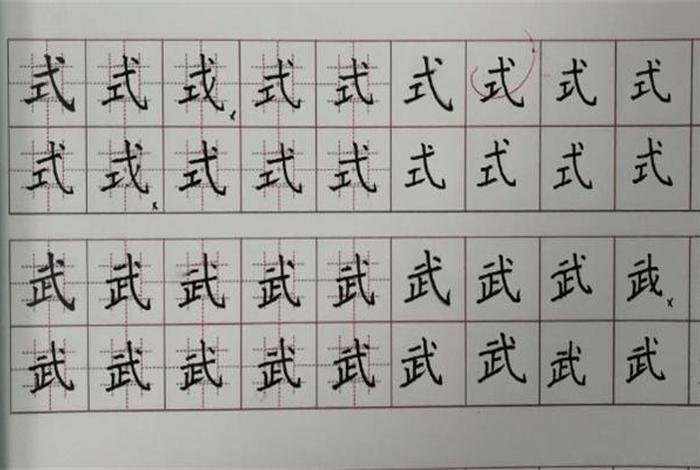 式式式式式式式式式
式式式式式式式式式
武武武武武武武武武
武武武武武武武武武